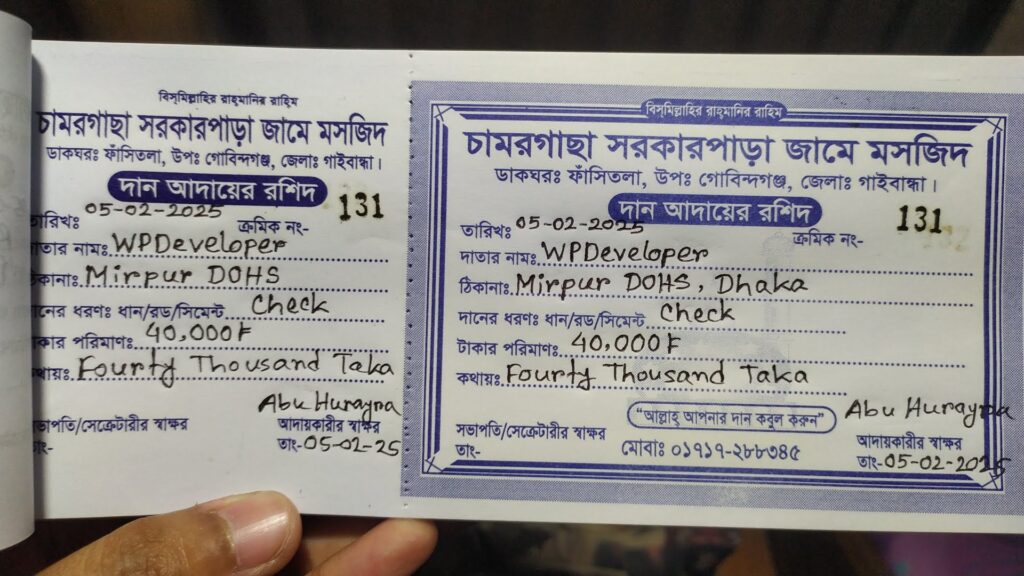 বিস্‌মিল্লাহির রাহ্‌মানির রাহিম
চামরগাছা সরকারপাড়া জামে মসজিদ
ডাকঘরঃ ফাঁসিতলা, উপঃ গোবিন্দগঞ্জ, জেলাঃ গাইবান্ধা।
দান আদায়ের রশিদ
তারিখঃ 05-02-2025
ক্রমিক নং- 131
দাতার নাম: WPDeveloper
ঠিকানা: Mirpur DOHS
দানের ধরণঃ ধান/রড/সিমেন্ট Check
টাকার পরিমাণ: 40,000৳
কথায়: Fourty Thousand Taka
Abu Hurayra
সভাপতি/সেক্রেটারীর স্বাক্ষর
আদায়কারীর স্বাক্ষর
তাং-
তাং-05-02-25
বিস্‌মিল্লাহির রাহ্‌মানির রাহিম
চামরগাছা সরকারপাড়া জামে মসজিদ
ডাকঘরঃ ফাঁসিতলা, উপঃ গোবিন্দগঞ্জ, জেলাঃ গাইবান্ধা।
দান আদায়ের রশিদ
তারিখঃ 05-02-2025
ক্রমিক নং- 131
দাতার নাম: WPDeveloper
ঠিকানা: Mirpur DOHS, Dhaka
দানের ধরণঃ ধান/রড/সিমেন্ট Check
টাকার পরিমাণ: 40,000৳
কথায়: Fourty Thousand Taka
Abu Hurayra
সভাপতি/সেক্রেটারীর স্বাক্ষর
"আল্লাহ্‌ আপনার দান কবুল করুন"
আদায়কারীর স্বাক্ষর
তাং-
মোবাঃ ০১৭১৭-২৮৮৩৪৫
তাং-05-02-2025